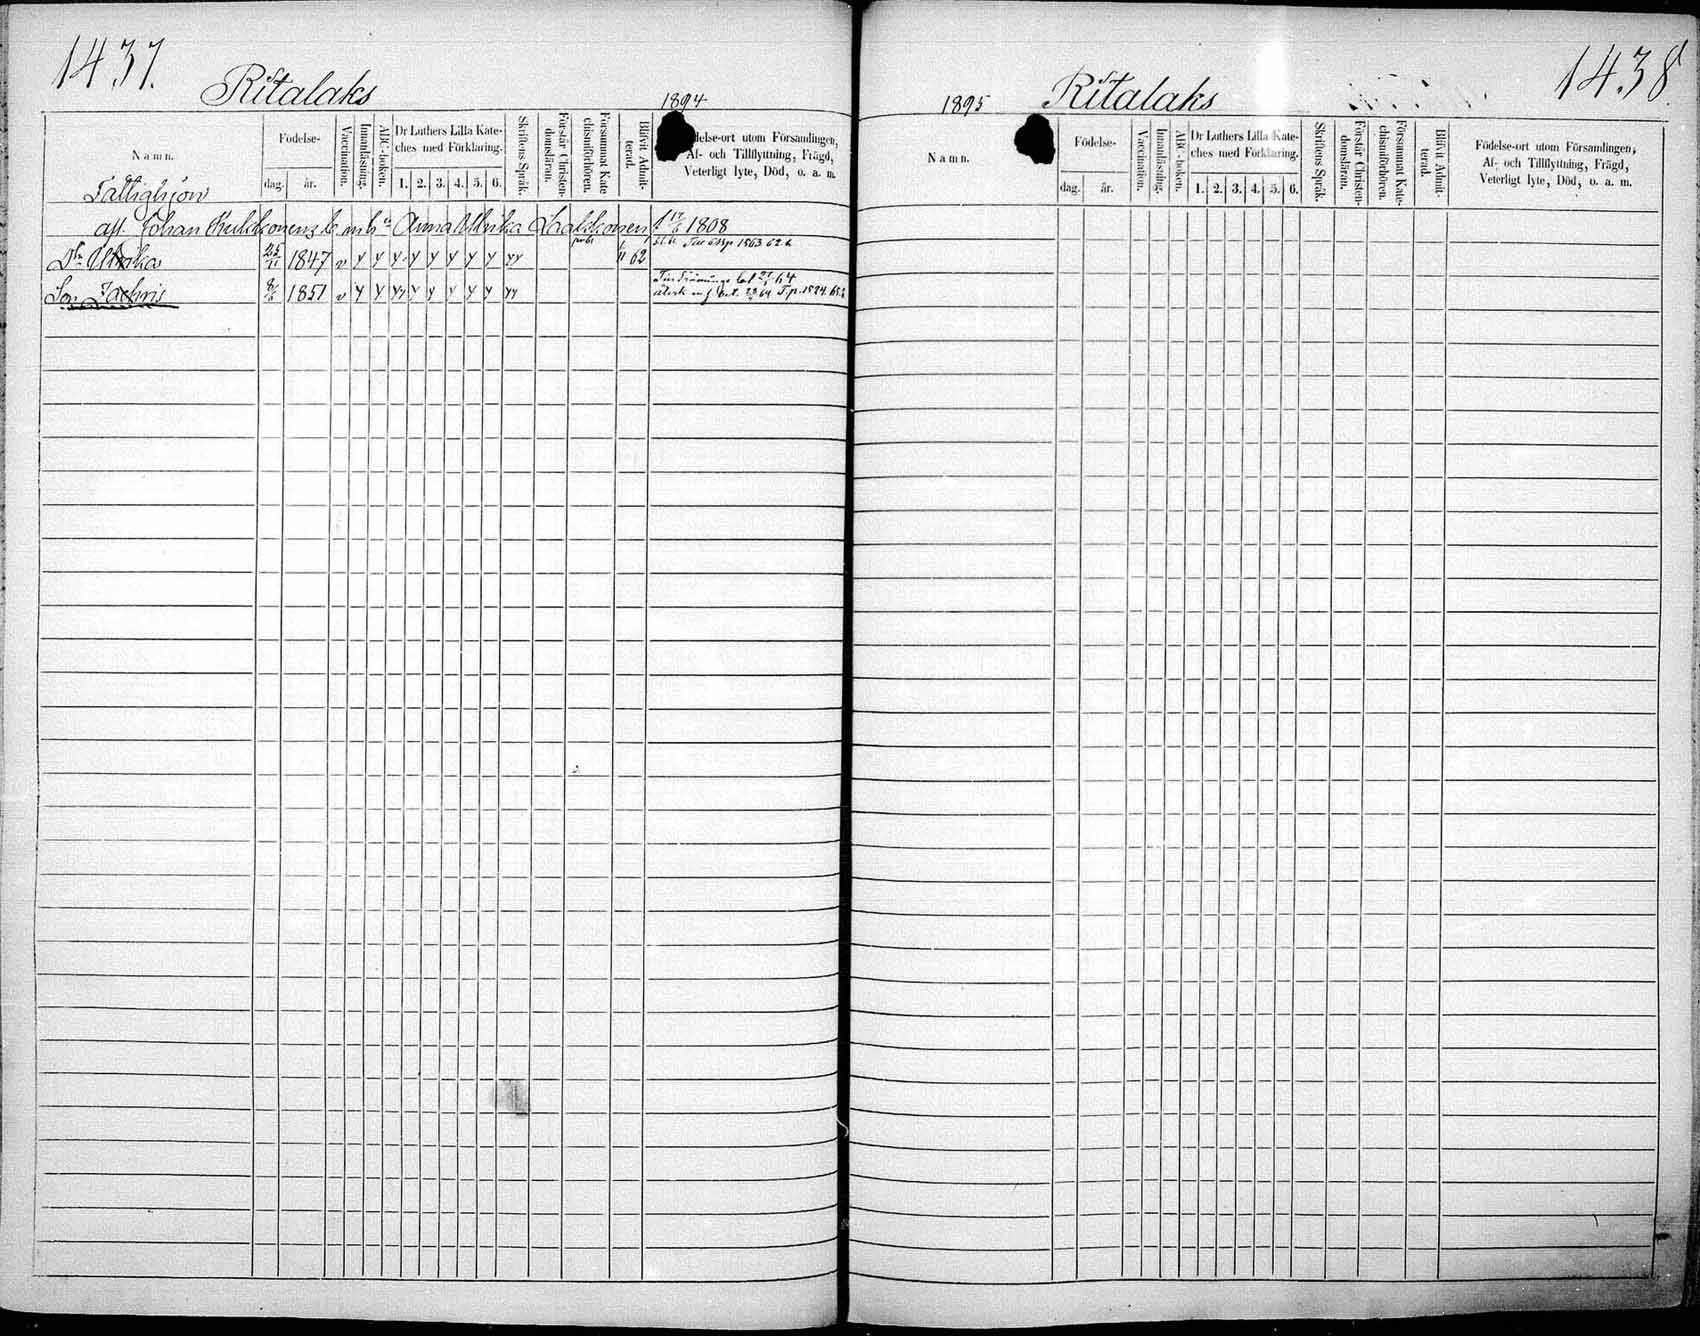 1437.
Ritalaks
1894
Namn.
Födelse-
dag. år.
Vaccination.
Innanläsning.
ABC-boken.
Dr Luthers Lilla Kate-
ches med Förklaring.
1. 2. 3. 4. 5. 6.
Skriftens Språk.
Förstår Christen-
domsläran.
Försummat Kate
chismiförhören.
Blifvit Admit-
terad.
delse-ort utom Församlingen,
Af- och Tillflyttning, Frägd,
Veterligt lyte, Död, o. a. m.
Fattighjon
afl. Johan enk. h Anna Ulrika 1808
Dr Ulrika 25/11 1847 v y y y y y y y y yy 62 1863 62.
Son Zachris 8/6 1851 v y y yy y y y y y yy 64
1438.
1895
Ritalaks
Namn.
Födelse-
dag. år.
Vaccination.
Innanläsning.
ABC-boken.
Dr Luthers Lilla Kate-
ches med Förklaring.
1. 2. 3. 4. 5. 6.
Skriftens Språk.
Förstår Christen-
domsläran.
Försummat Kate-
chismiförhören.
Blifvit Admit-
terad.
Födelse-ort utom Församlingen,
Af- och Tillflyttning, Frägd,
Veterligt lyte, Död, o. a. m.